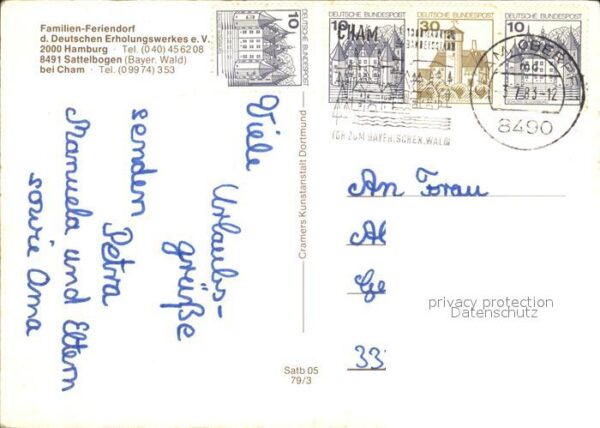 Familien-Feriendorf
d. Deutschen Erholungswerkes e.V.
2000 Hamburg · Tel. (040) 456208
8491 Sattelbogen (Bayer. Wald)
bei Cham · Tel. (09974) 353
10
DEUTSCHE BUNDESPOST
DEUTSCHE BUNDESPOST
10
DEUTSCHE BUNDESPOST
30
DEUTSCHE BUNDESPOST
10
CHAM
8490
Viele Urlaubs-
grüße
senden Petra
Manuela und Eltern
sowie Oma
Cramers Kunstanstalt Dortmund
An Frau
Al
Ge
33
privacy protection
Datenschutz
Satb 05
79/3